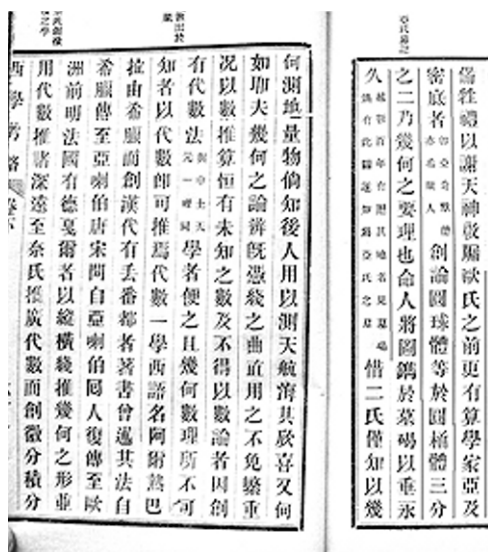 牲禮以謝天神 歐氏之前更有算學家亞及
密底者 亦希臘人 創論圓球體等於圓桶體三分
之二乃幾何之要理也命人將圖鐫於墓碣以垂永
久 越數百年 其地 見墓碣 鐫有此圖遂知爲亞氏之墓 惜二氏僅知以幾
何測地量物倘知後人用以測天航海其欣喜又何
如耶夫幾何之論辨旣憑綫之曲直用之不免繁重
况以數推算恒有未知之數及不得以數論者因創
有代數法 與中土天元一理同 學者便之且幾何數理所不可
知者以代數卽可推焉代數一學西語名阿爾熱巴
拉由希臘而創漢代有丟番都者著書曾述其法自
希臘傳至亞喇伯唐宋間自亞喇伯囘人復傳至歐
洲前明法國有德戛爾者以縱橫綫推幾何之形並
用代數推諸深遠至奈氏推廣代數而創微分積分
西學考略 卷下